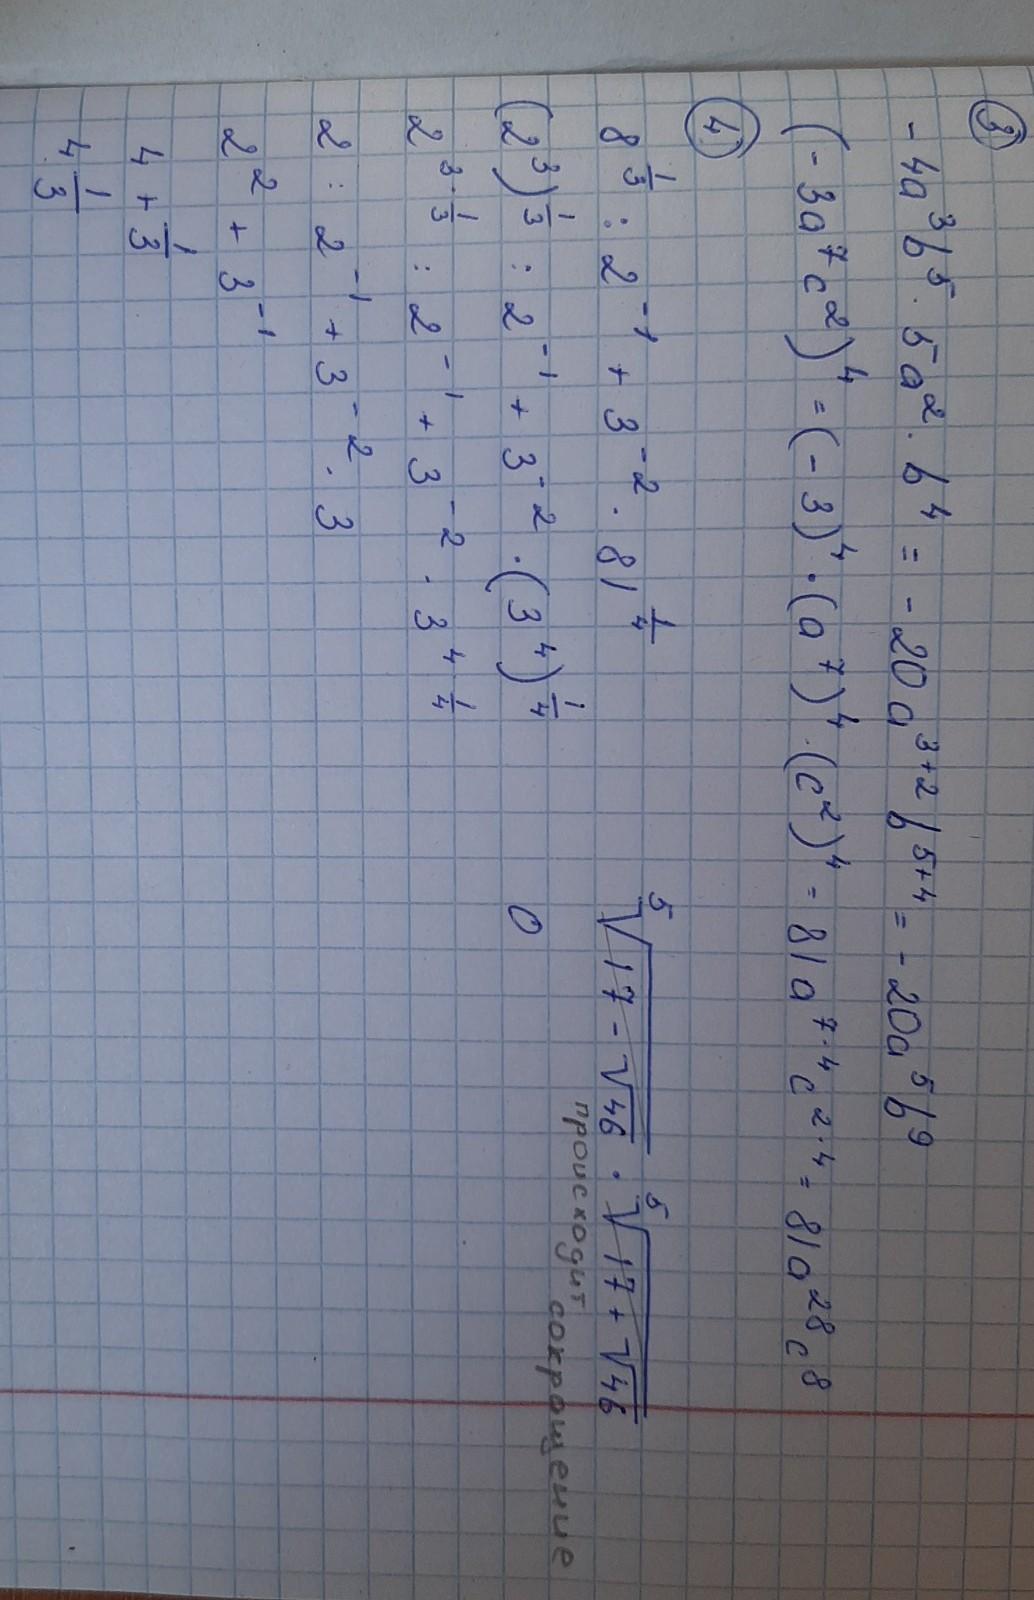 ③
- 4a³b⁵ · 5a² · b⁴ = - 20a³⁺²b⁵⁺⁴ = - 20a⁵b⁹
(- 3a⁷c²)⁴ = (- 3)⁴ · (a⁷)⁴ · (c²)⁴ = 81a^{7·4}c^{2·4} = 81a²⁸c⁸
④
8^{1/3} : 2⁻¹ + 3⁻² · 81^{1/4}
(2³)^{1/3} : 2⁻¹ + 3⁻² · (3⁴)^{1/4}
2^{3·1/3} : 2⁻¹ + 3⁻² · 3^{4·1/4}
2 : 2⁻¹ + 3⁻² · 3
2² + 3⁻¹
4 + 1/3
4 1/3
⁵√(17 - √46) · ⁵√(17 + √46)
происходит сокращение
0